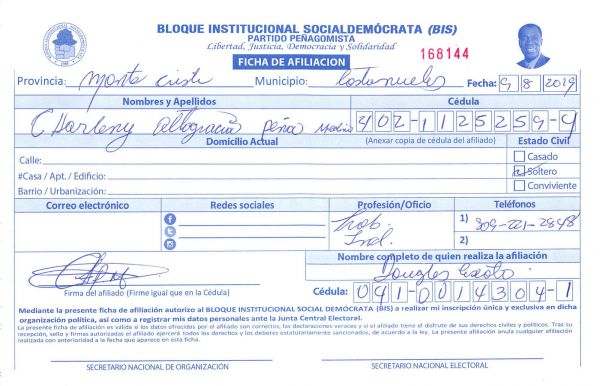 BLOQUE INSTITUCIONAL SOCIALDEMÓCRATA (BIS)
PARTIDO PEÑAGOMISTA
Libertad, Justicia, Democracia y Solidaridad
FICHA DE AFILIACION
168144
Provincia: Monte Cristi Municipio: Castañuelas Fecha: 9 8 2019
Nombres y Apellidos Cédula
CHarleny Altagracia Peña Medina 402-1125259-4
Domicilio Actual (Anexar copia de cédula del afiliado) Estado Civil
Calle: Casado
#Casa / Apt. / Edificio: Soltero
Barrio / Urbanización: Conviviente
Correo electrónico Redes sociales Profesión/Oficio Teléfonos
Trab. 1) 809-221-2848
Ind. 2)
Nombre completo de quien realiza la afiliación
Douglas
Firma del afiliado (Firme igual que en la Cédula) Cédula: 041-0014304-1
Mediante la presente ficha de afiliación autorizo al BLOQUE INSTITUCIONAL SOCIAL DEMÓCRATA (BIS) a realizar mi inscripción única y exclusiva en dicha
organización política, así como a registrar mis datos personales ante la Junta Central Electoral.
La presente ficha de afiliación es válida si los datos ofrecidos por el afiliado son correctos, las declaraciones veraces y si el afiliado tiene el disfrute de sus derechos civiles y políticos. Tras su
recepción, sello y firmas autorizadas el afiliado ejercerá todos los derechos y los deberes estatutariamente sancionados, de acuerdo a la ley. La presente afiliación anula cualquier afiliación
realizada con anterioridad a la fecha que aparece en esta ficha.
SECRETARIO NACIONAL DE ORGANIZACIÓN SECRETARIO NACIONAL ELECTORAL